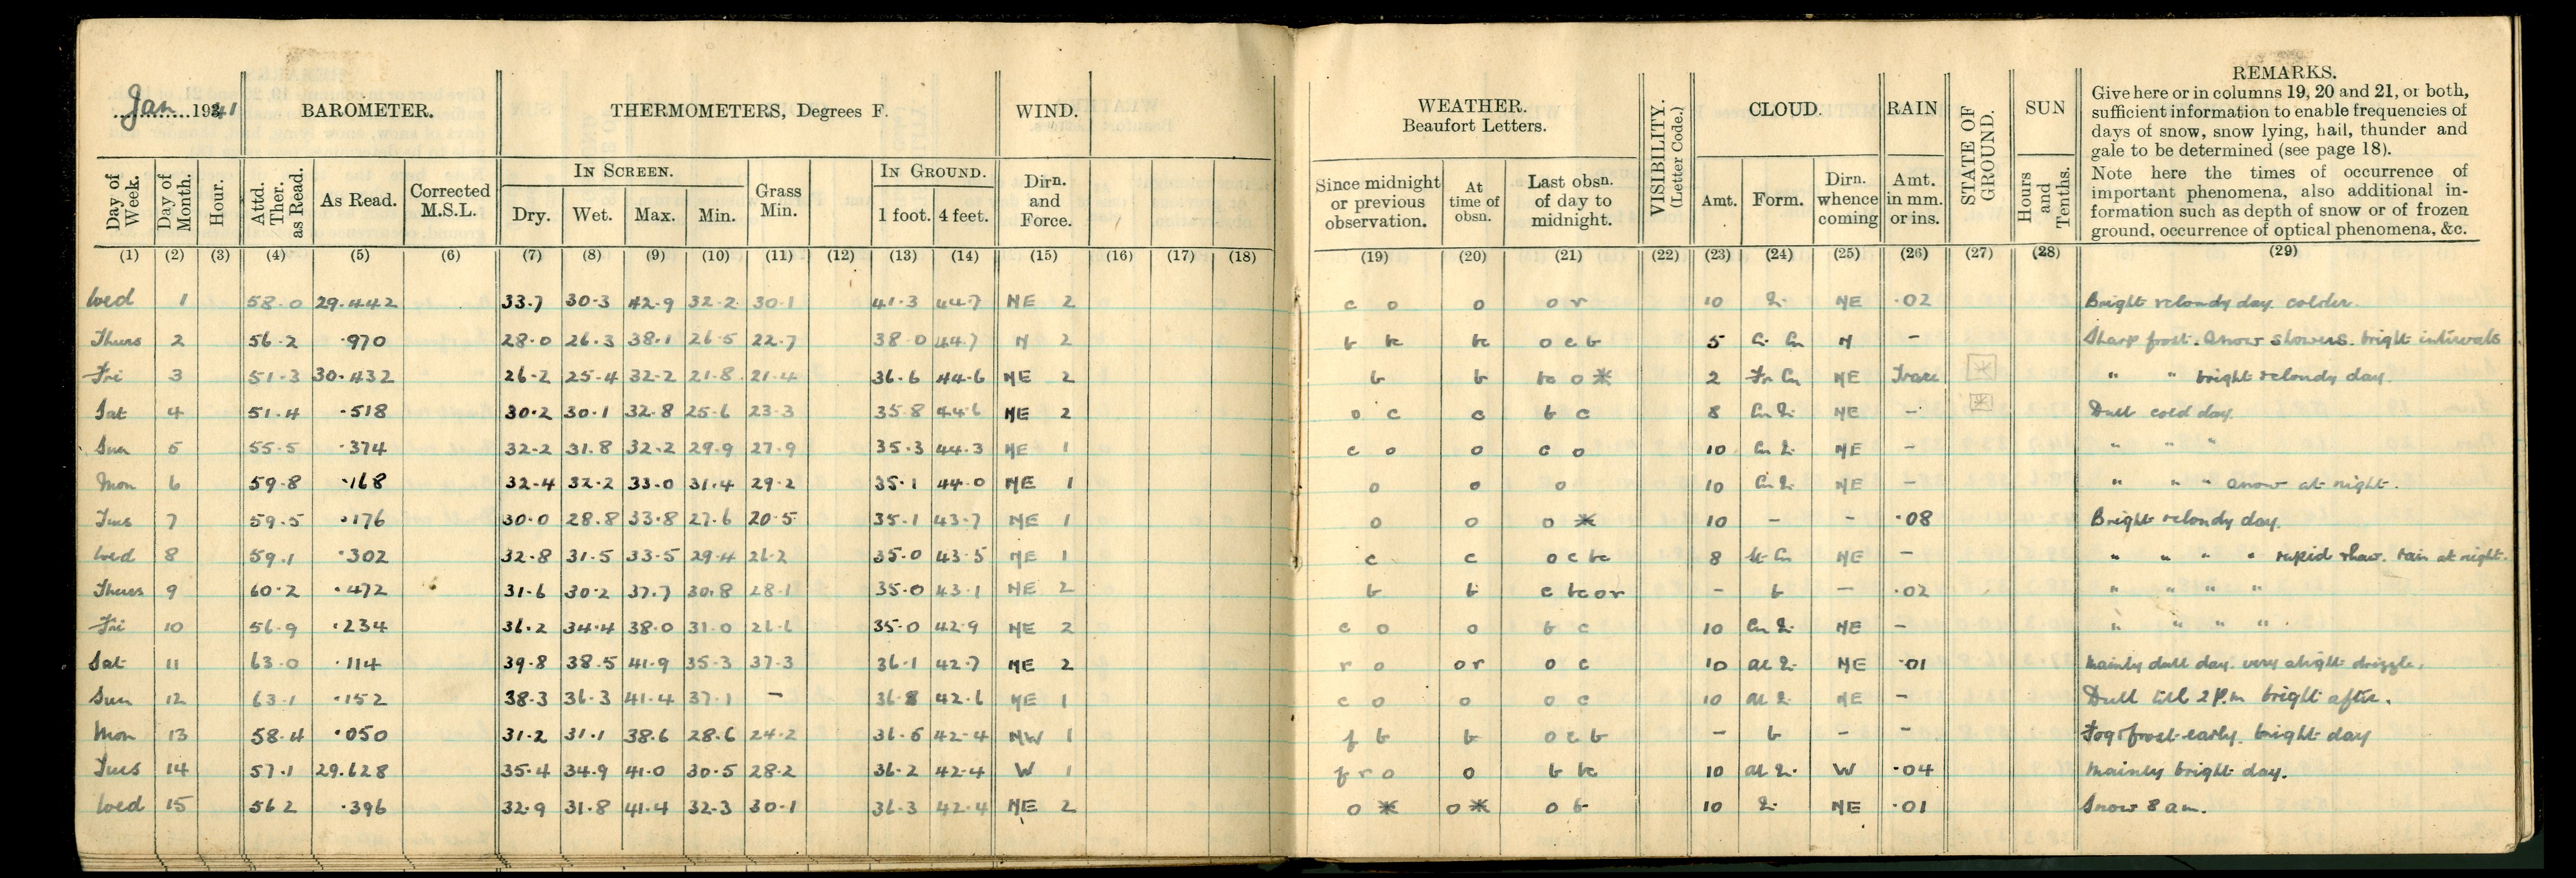 Jan. 1941
BAROMETER.
THERMOMETERS, Degrees F.
WIND.
WEATHER.
Beaufort Letters.
VISIBILITY.
(Letter Code.)
CLOUD.
RAIN
STATE OF GROUND.
SUN
REMARKS.
Give here or in columns 19, 20 and 21, or both,
sufficient information to enable frequencies of
days of snow, snow lying, hail, thunder and
gale to be determined (see page 18).
Note here the times of occurrence of
important phenomena, also additional in-
formation such as depth of snow or of frozen
ground, occurrence of optical phenomena, &c.
Day of Week.
Day of Month.
Hour.
Attd. Ther. as Read.
As Read.
Corrected M.S.L.
IN SCREEN.
Dry. Wet. Max. Min.
Grass Min.
IN GROUND.
1 foot. 4 feet.
Dirn. and Force.
Since midnight or previous observation.
At time of obsn.
Last obsn. of day to midnight.
Amt. Form. Dirn. whence coming
Amt. in mm. or ins.
Hours and Tenths.
(1) (2) (3) (4) (5) (6) (7) (8) (9) (10) (11) (12) (13) (14) (15) (16) (17) (18) (19) (20) (21) (22) (23) (24) (25) (26) (27) (28) (29)
Wed 1 58.0 29.442 33.7 30.3 42.9 32.2 30.1 41.3 44.7 NE 2 c o o o r 10 NE .02 Bright cloudy day. colder.
Thurs 2 56.2 .970 28.0 26.3 38.1 26.5 22.7 38.0 44.7 N 2 b bc bc o c b 5 N - Sharp frost. Snow showers. bright intervals
Fri 3 51.3 30.432 26.2 25.4 32.2 21.8 21.4 36.6 44.6 NE 2 b b bc o * 2 Fr Cu NE Trace * " " bright cloudy day.
Sat 4 51.4 .518 30.2 30.1 32.8 25.6 23.3 35.8 44.6 NE 2 o c c b c 8 NE - * Dull cold day.
Sun 5 55.5 .374 32.2 31.8 32.2 29.9 27.9 35.3 44.3 NE 1 c o o c o 10 NE - " " "
Mon 6 59.8 .168 32.4 32.2 33.0 31.4 29.2 35.1 44.0 NE 1 o o o 10 NE - " " " Snow at night.
Tues 7 59.5 .176 30.0 28.8 33.8 27.6 20.5 35.1 43.7 NE 1 o o o * 10 - - .08 Bright cloudy day.
Wed 8 59.1 .302 32.8 31.5 33.5 29.4 26.2 35.0 43.5 NE 1 c c o c bc 8 NE - " " " " rapid thaw. rain at night.
Thurs 9 60.2 .472 31.6 30.2 37.7 30.8 28.1 35.0 43.1 NE 2 b b c bc o r - b - .02 " " " "
Fri 10 56.9 .234 36.2 34.4 38.0 31.0 26.6 35.0 42.9 NE 2 c o o b c 10 NE - " " " "
Sat 11 63.0 .114 39.8 38.5 41.9 35.3 37.3 36.1 42.7 NE 2 r o o r o c 10 NE .01 Mainly dull day. very slight drizzle.
Sun 12 63.1 .152 38.3 36.3 41.4 37.1 - 36.8 42.6 NE 1 c o o o c 10 NE - Dull till 2 P.m bright after.
Mon 13 58.4 .050 31.2 31.1 38.6 28.6 24.2 36.5 42.4 NW 1 f b b o c b - b - - Fog & frost early. bright day
Tues 14 57.1 29.628 35.4 34.9 41.0 30.5 28.2 36.2 42.4 W 1 f r o o b bc 10 W .04 Mainly bright day.
Wed 15 56 2 .396 32.9 31.8 41.4 32.3 30.1 36.3 42.4 NE 2 o * o * o b 10 NE .01 Snow 8 am.